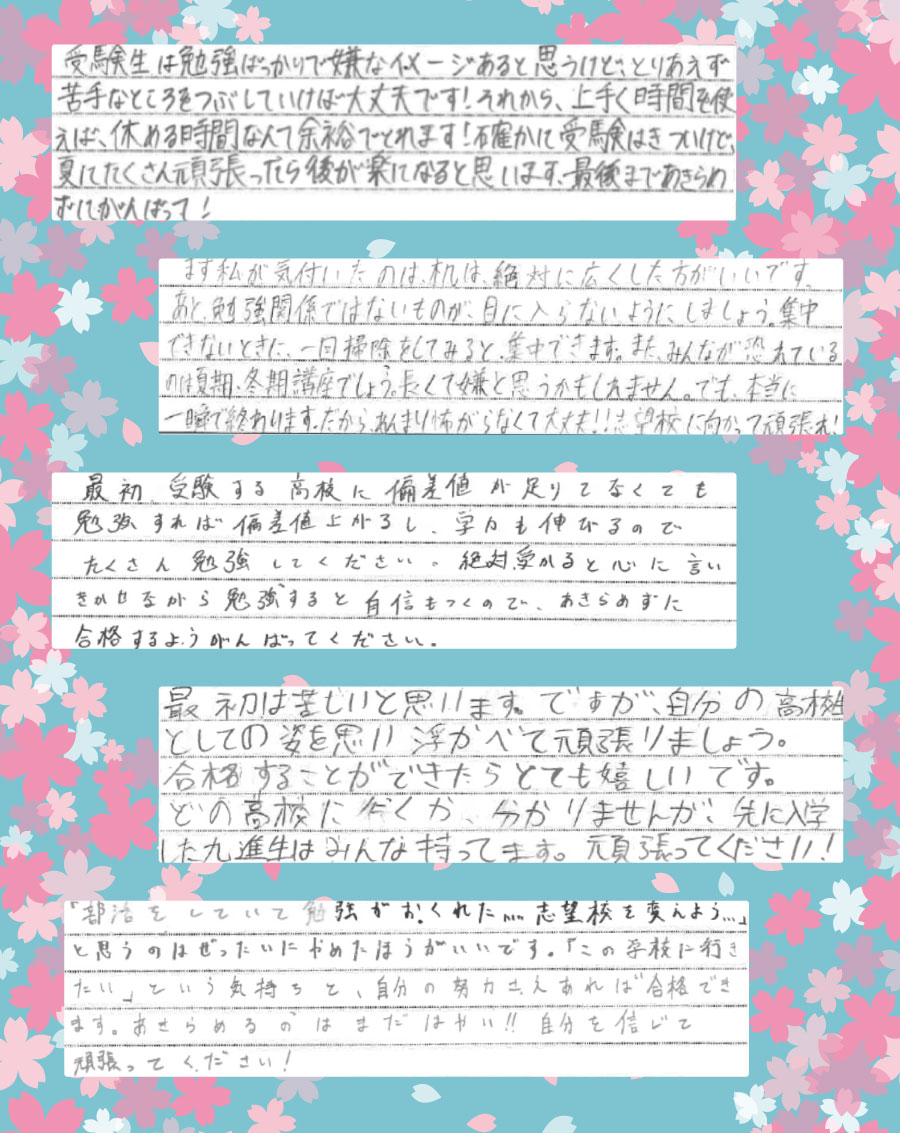 受験生は勉強ばっかりで嫌なイメージあると思うけど、とりあえず
苦手なところをつぶしていけば大丈夫です!それから、上手く時間を使
えば、休める時間なんて余裕でとれます!確かに受験はきついけど、
夏にたくさん頑張ったら後が楽になると思います、最後まであきらめ
ずにがんばって!
まず私が気付いたのは、机は、絶対に広くした方がいいです。
あと、勉強関係ではないものが、目に入らないように、しましょう。集中
できないときに、一回掃除をしてみると、集中できます。また、みんなが恐れている
のは夏期・冬期講座でしょう。長くて嫌と思うかもしれません。でも、本当に
一瞬で終わります。だから、あんまり怖がらなくて大丈夫!!志望校に向かって頑張れ!
最初、受験する高校に偏差値が足りてなくても
勉強すれば偏差値上がるし、学力も伸びるので
たくさん勉強してください。絶対受かると心に言い
きかせながら勉強すると自信もつくので、あきらめずに
合格するようがんばってください。
最初は苦しいと思います。ですが、自分の高校生
としての姿を思い浮かべて頑張りましょう。
合格することができたらとても嬉しいです。
どの高校に行くか、分かりませんが、先に入学
した九進生はみんな待ってます。頑張ってください!
「部活をしていて勉強がおくれた……志望校を変えよう…」
と思うのはぜったいにやめたほうがいいです。「この学校に行き
たい」という気持ちと、自分の努力さえあれば合格でき
ます。あきらめるのはまだはやい!!自分を信じて
頑張ってください!